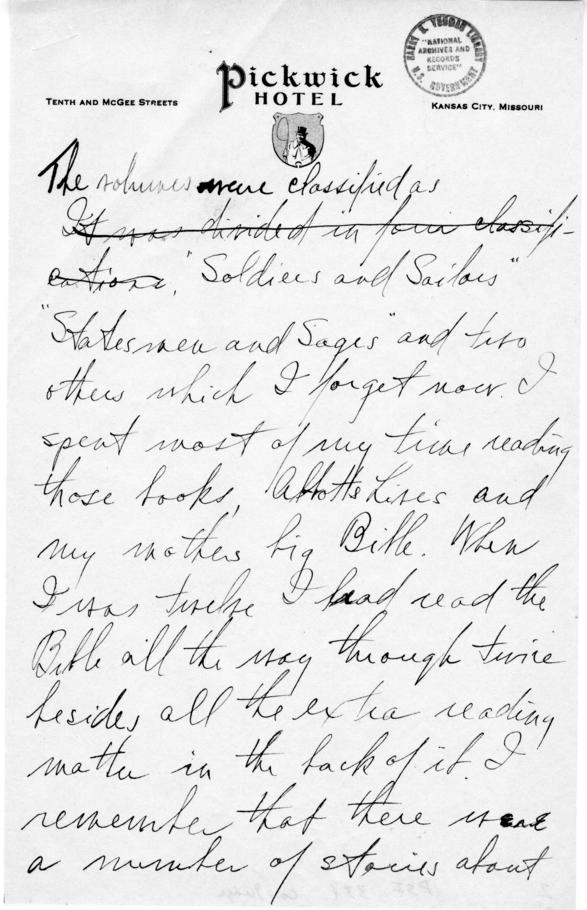 HARRY S. TRUMAN LIBRARY
"NATIONAL
ARCHIVES AND
RECORDS
SERVICE"
U.S. GOVERNMENT
Pickwick
HOTEL
TENTH AND MCGEE STREETS
KANSAS CITY, MISSOURI
The volumes were classified as
It was divided in four classifi-
cations, "Soldiers and Sailors"
"Statesmen and Sages" and two
others which I forget now. I
spent most of my time reading
those books, Abbotts Lives and
my mothers big Bible. When
I was twelve I had read the
Bible all the way through twice
besides all the extra reading
matter in the back of it. I
remember that there were
a number of stories about